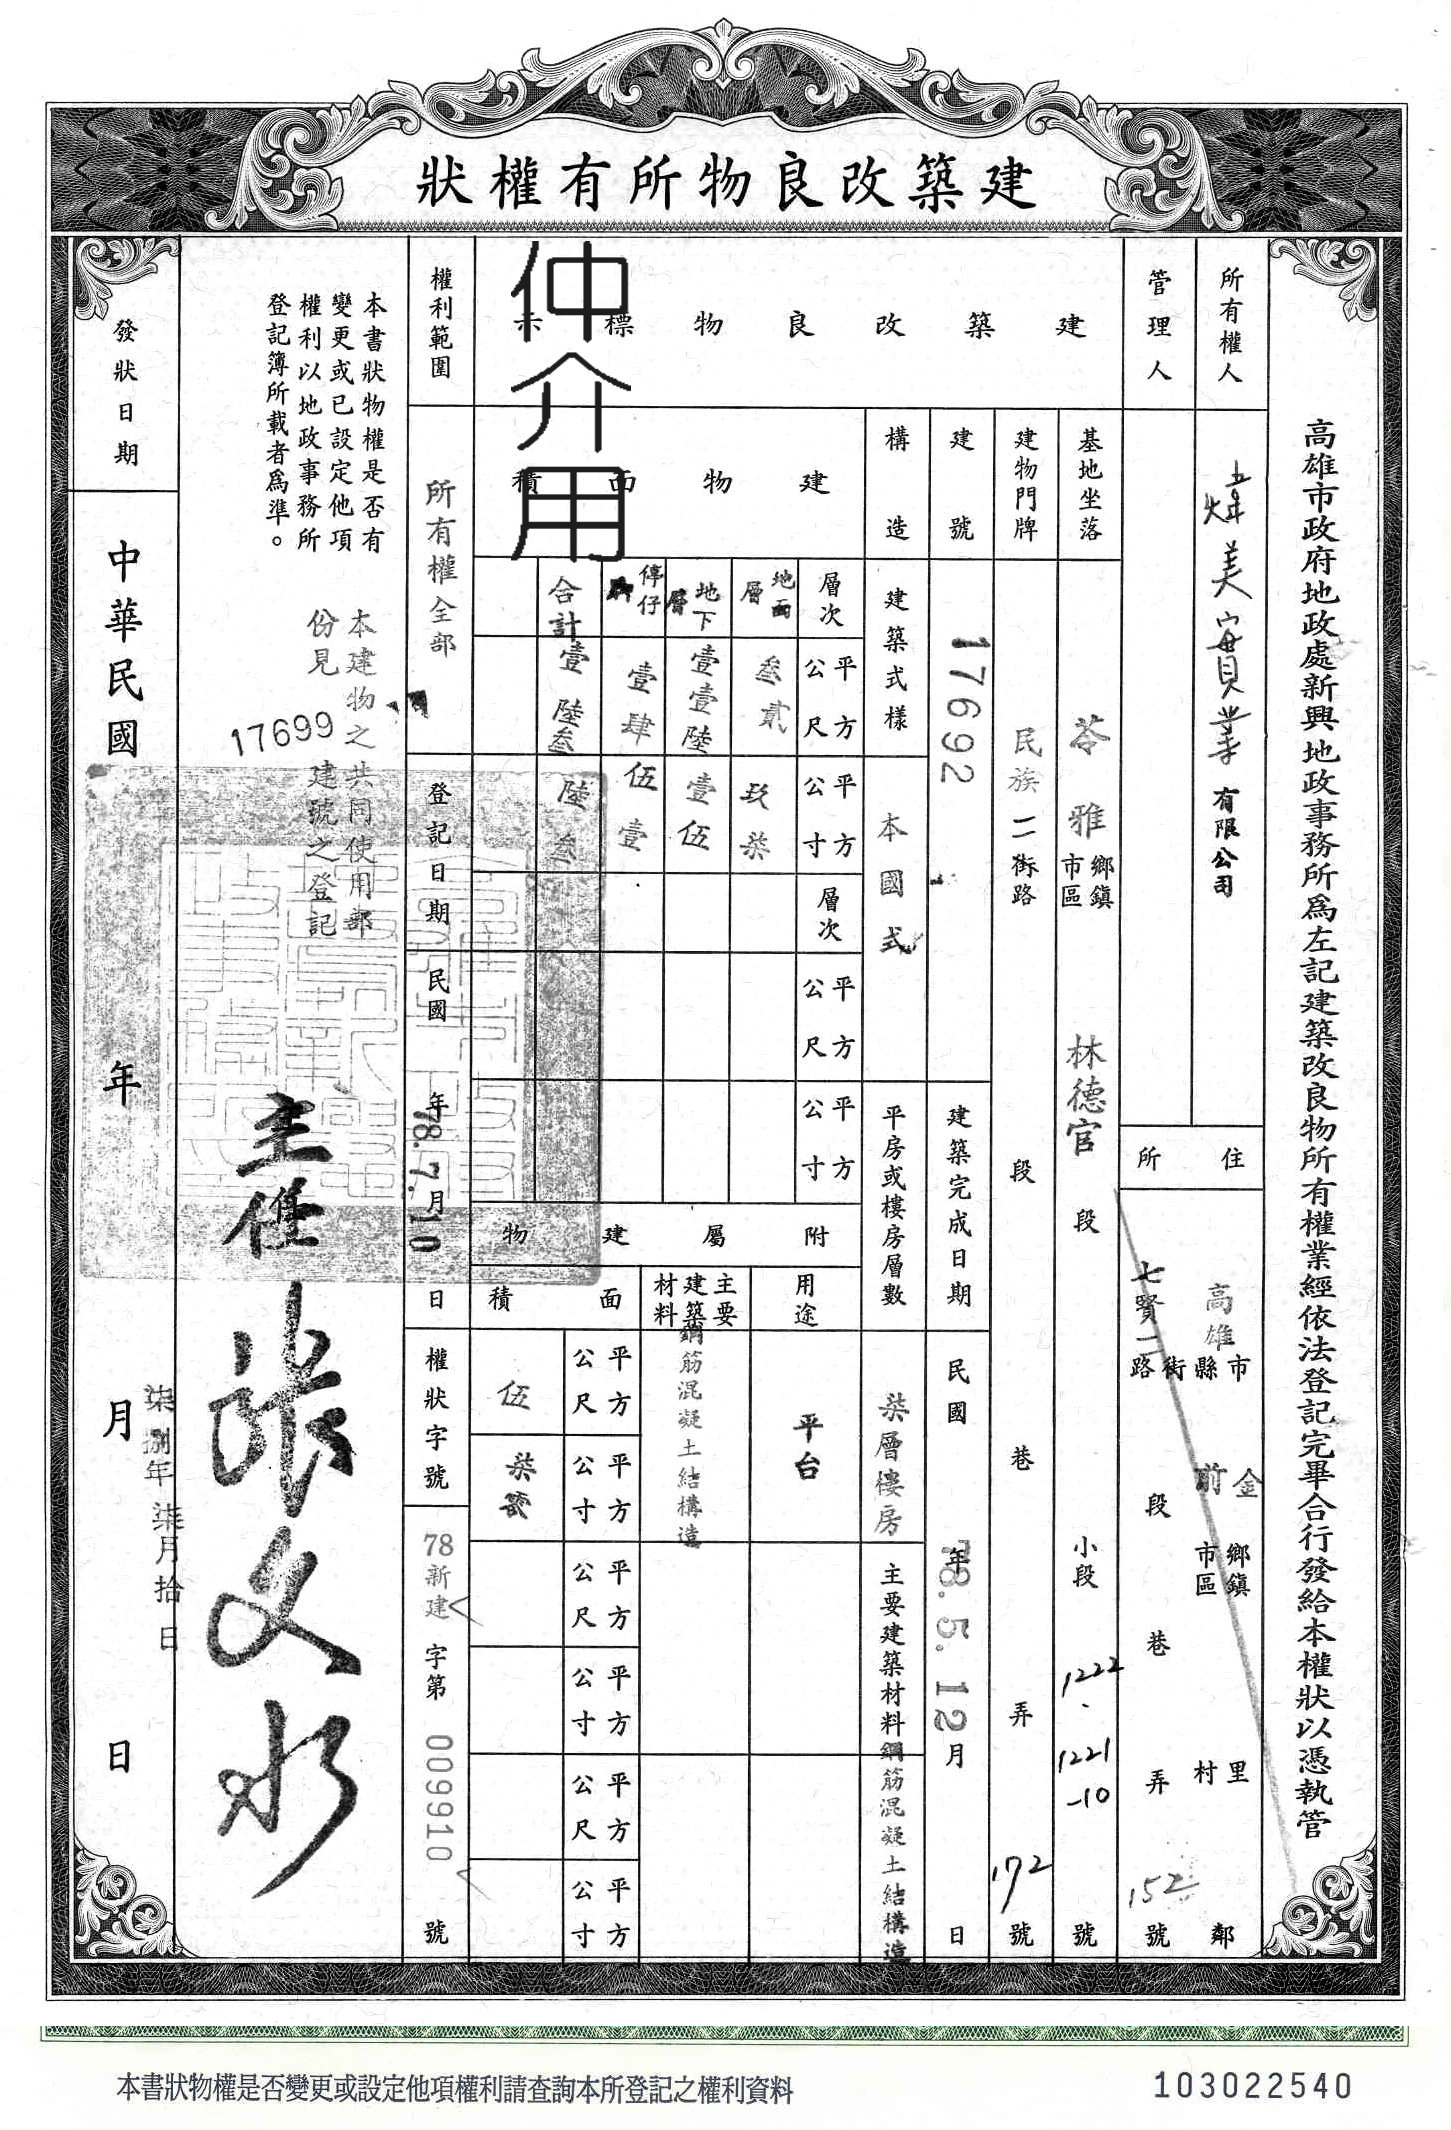 建築改良物所有權狀
高雄市政府地政處新興地政事務所為左記建築改良物所有權業經依法登記完畢合行發給本權狀以憑執管
所有權人
煒美實業有限公司
管理人
住所
高雄市縣
金前鄉鎮市區
里村
鄰
七賢二街路
段
巷
弄
152號
建築改良物標示
基地坐落
苓雅鄉鎮市區
林德官段
小段
1222、1221-10號
建物門牌
民族二街路
段
巷
弄
172號
建號
17692
建築完成日期
民國78年5.12月日
構造
建築式樣
本國式
平房或樓房層數
柒層樓房
主要建築材料
鋼筋混凝土結構造
建物面積
層次
平方公尺
平方公寸
層次
平方公尺
平方公寸
地面層
叁貳
玖柒
地下層
壹壹陸
壹伍
停仔
壹肆
伍壹
合計
壹陸叁
陸叁
附屬建物
用途
平台
主要建築材料
鋼筋混凝土結構造
面積
平方公尺
平方公寸
平方公尺
平方公寸
平方公尺
平方公寸
伍
柒零
仲介用
權利範圍
所有權全部
登記日期
民國78年7.月10日
權狀字號
78新建字第009910號
本書狀物權是否有
變更或已設定他項
權利以地政事務所
登記簿所載者為準。
本建物之共同使用部
份見17699建號之登記
主任張文水
發狀日期
中華民國年月日
柒捌年柒月拾日
本書狀物權是否變更或設定他項權利請查詢本所登記之權利資料
103022540